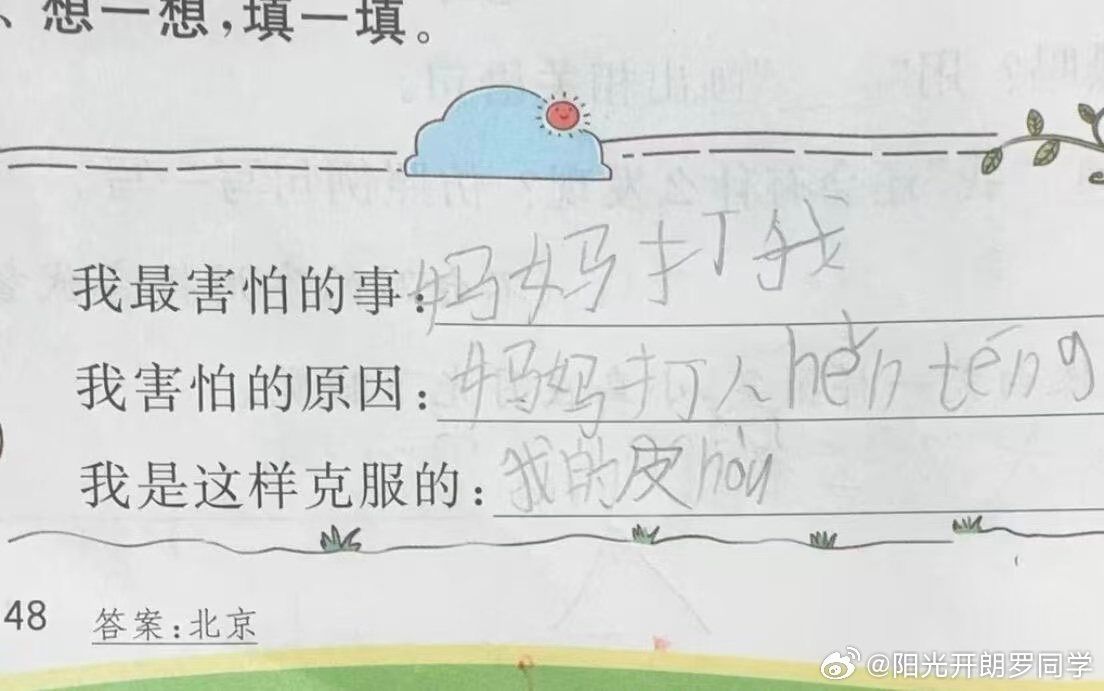 、想一想,填一填。
我最害怕的事:妈妈打我
我害怕的原因:妈妈打人hěn téng
我是这样克服的:我的皮hòu
48 答案:北京
@阳光开朗罗同学